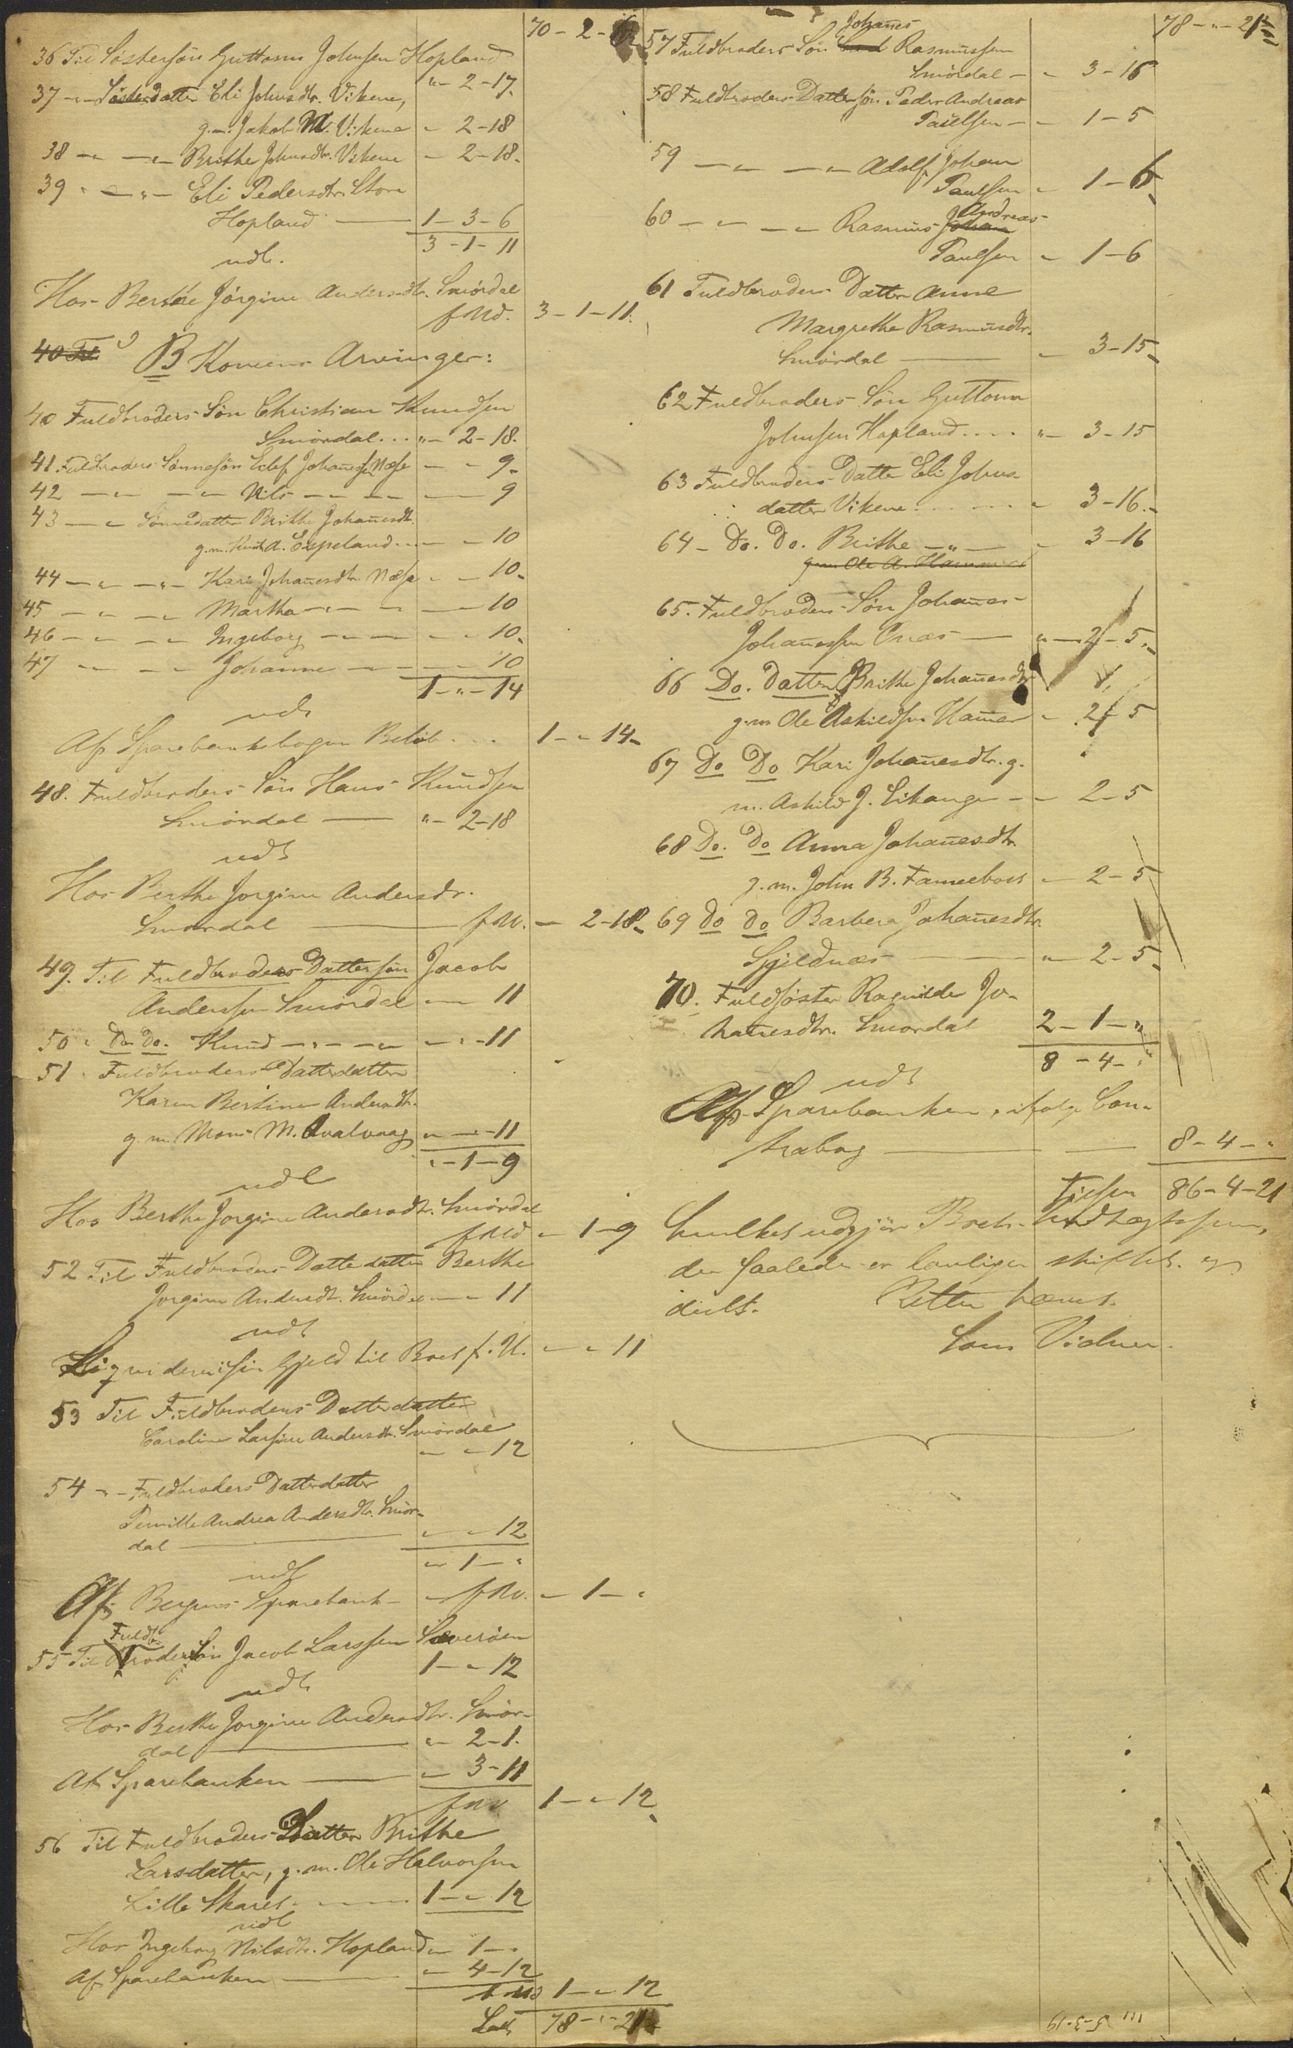 70-2-
36 Til Søstersøn Guttorm Johnsen Hopland
" 2-17
37 -"- Søsterdatter Eli Johnsdtr. Vikene,
g.m. Jakob M. Vikene " 2-18
38 -"- -"- Brithe Johnsdtr. Vikene " 2-18.
39 " -"- Eli Pedersdtr. Store
Hopland 1-3-6
3-1-11
udl.
Hos Berthe Jørgine Andersdtr. Smørdal
f Ud. 3-1-11.
40 Til
B Konens Arvinger:
40 Fuldbroders Søn Christian Knudsen
Smørdal... "- 2-18.
41. Fuldbroders Sønnesøn Elef Johannesen Næse - " 9-
42 -"- -"- Nils -"- -"- 9
43 -"- Sønnedatter Brithe Johannesdtr.
g.m. Knud A. Espeland... - " 10
44 -"- -"- Kari Johannesdtr. Næse - " 10-
45 -"- -"- Martha -"- " 10
46 -"- -"- Ingeborg -"- " 10-
47 -"- -"- Johanne -"- " 10
1-"-14
udl
Af Sparebanksbogen Beløb.... 1-"-14-
48. Fuldbroders Søn Hans Knudsen
Smørdal " 2-18
udl
Hos Berthe Jørgine Andersdtr.
Smørdal f Ud. - 2-18-
49. Til Fuldbroders Dattersøn Jacob
Andersen Smørdal -"- 11
50 " Do. Do. Knud -"- -"- -"-11
51 " Fuldbroders Datterdatter
Karen Bertine Andersdtr.
g.m. Mons M. Qvalvaag "-"-11
"-1-9
udl
Hos Berthe Jorgine Andersdtr. Smørdal
f Ud - 1-9
52 Til Fuldbroders Datterdatter Berthe
Jorgine Andersdtr. Smørdal -"- 11
udl
Liqviderer i sin Gjeld til Boet f. U. -"-11
53 Til Fuldbroders Datterdatter
Caroline Larsine Andersdtr. Smørdal
" " 12
54 -"- Fuldbroders Datterdatter
Pernille Andrea Andersdtr. Smør-
dal " " 12
" 1-"
udl
Af Bergens Sparebank - f Ud. - 1-"
55 Til Fuldbroders Søn Jacob Larssen Sæverøen
1-"-12
udl
Hos Berthe Jorgine Andersdtr. Smør-
dal " 2-1.
Af Sparebanken " 3-11
f Ud 1-"-12
56 Til Fuldbroders Datter Brithe
Larsdatter, g.m. Ole Halvorsen
Lille Skaret 1-"-12
udl
Hos Ingeborg Nilsdtr. Hopland " 1-"
Af Sparebanken " 4-12
f Ud 1-"-12
Lats 78-"-21
78-"-21
57 Fuldbroders Søn Johannes Rasmussen
Smørdal - " 3-16
58 Fuldbroders Dattersøn Peder Andreas
Paulsen - " 1-5
59 -"- -"- Adolf Johan
Paulsen " 1-6
60 -"- -"- Rasmus Johan Andreas
Paulsen " 1-6
61 Fuldbroders Datter Anne
Margrethe Rasmusdtr.
Smørdal " 3-15
62 Fuldbroders Søn Guttorm
Johnsen Hopland.... " 3-15
63 Fuldbroders Datter Eli Johns
datter Vikene...... " 3-16.-
64 - Do. Do. Brithe -"- " 3-16
g.m. Ole A. Hammer
65. Fuldbroders Søn Johannes
Johannessen " 2-5.-
66 Do. Datter Brithe Johannesdtr
g.m Ole Askildsen Hamer " 2-5
67 Do Do Kari Johannesdtr. g.
m. Askild J. Eikanger - " 2-5
68 Do. Do Anna Johannesdtr.
g.m. John B. " 2-5
69 Do Do Barbera Johannesdtr.
Gjeldnæs " 2-5
70. Fuldsøster Ragnilde Jo-
hannesdtr. Smørdal 2-1-"
8-4-"
udl
Af Sparebanken, ifølge Con-
trabog 8-4-"
Tilsm 86-4-21
hvilket udgjør Boets Indtægtssum,
der saaledes er lovligen skiftet og
deelt. Retten hævet.
Som Vidner.